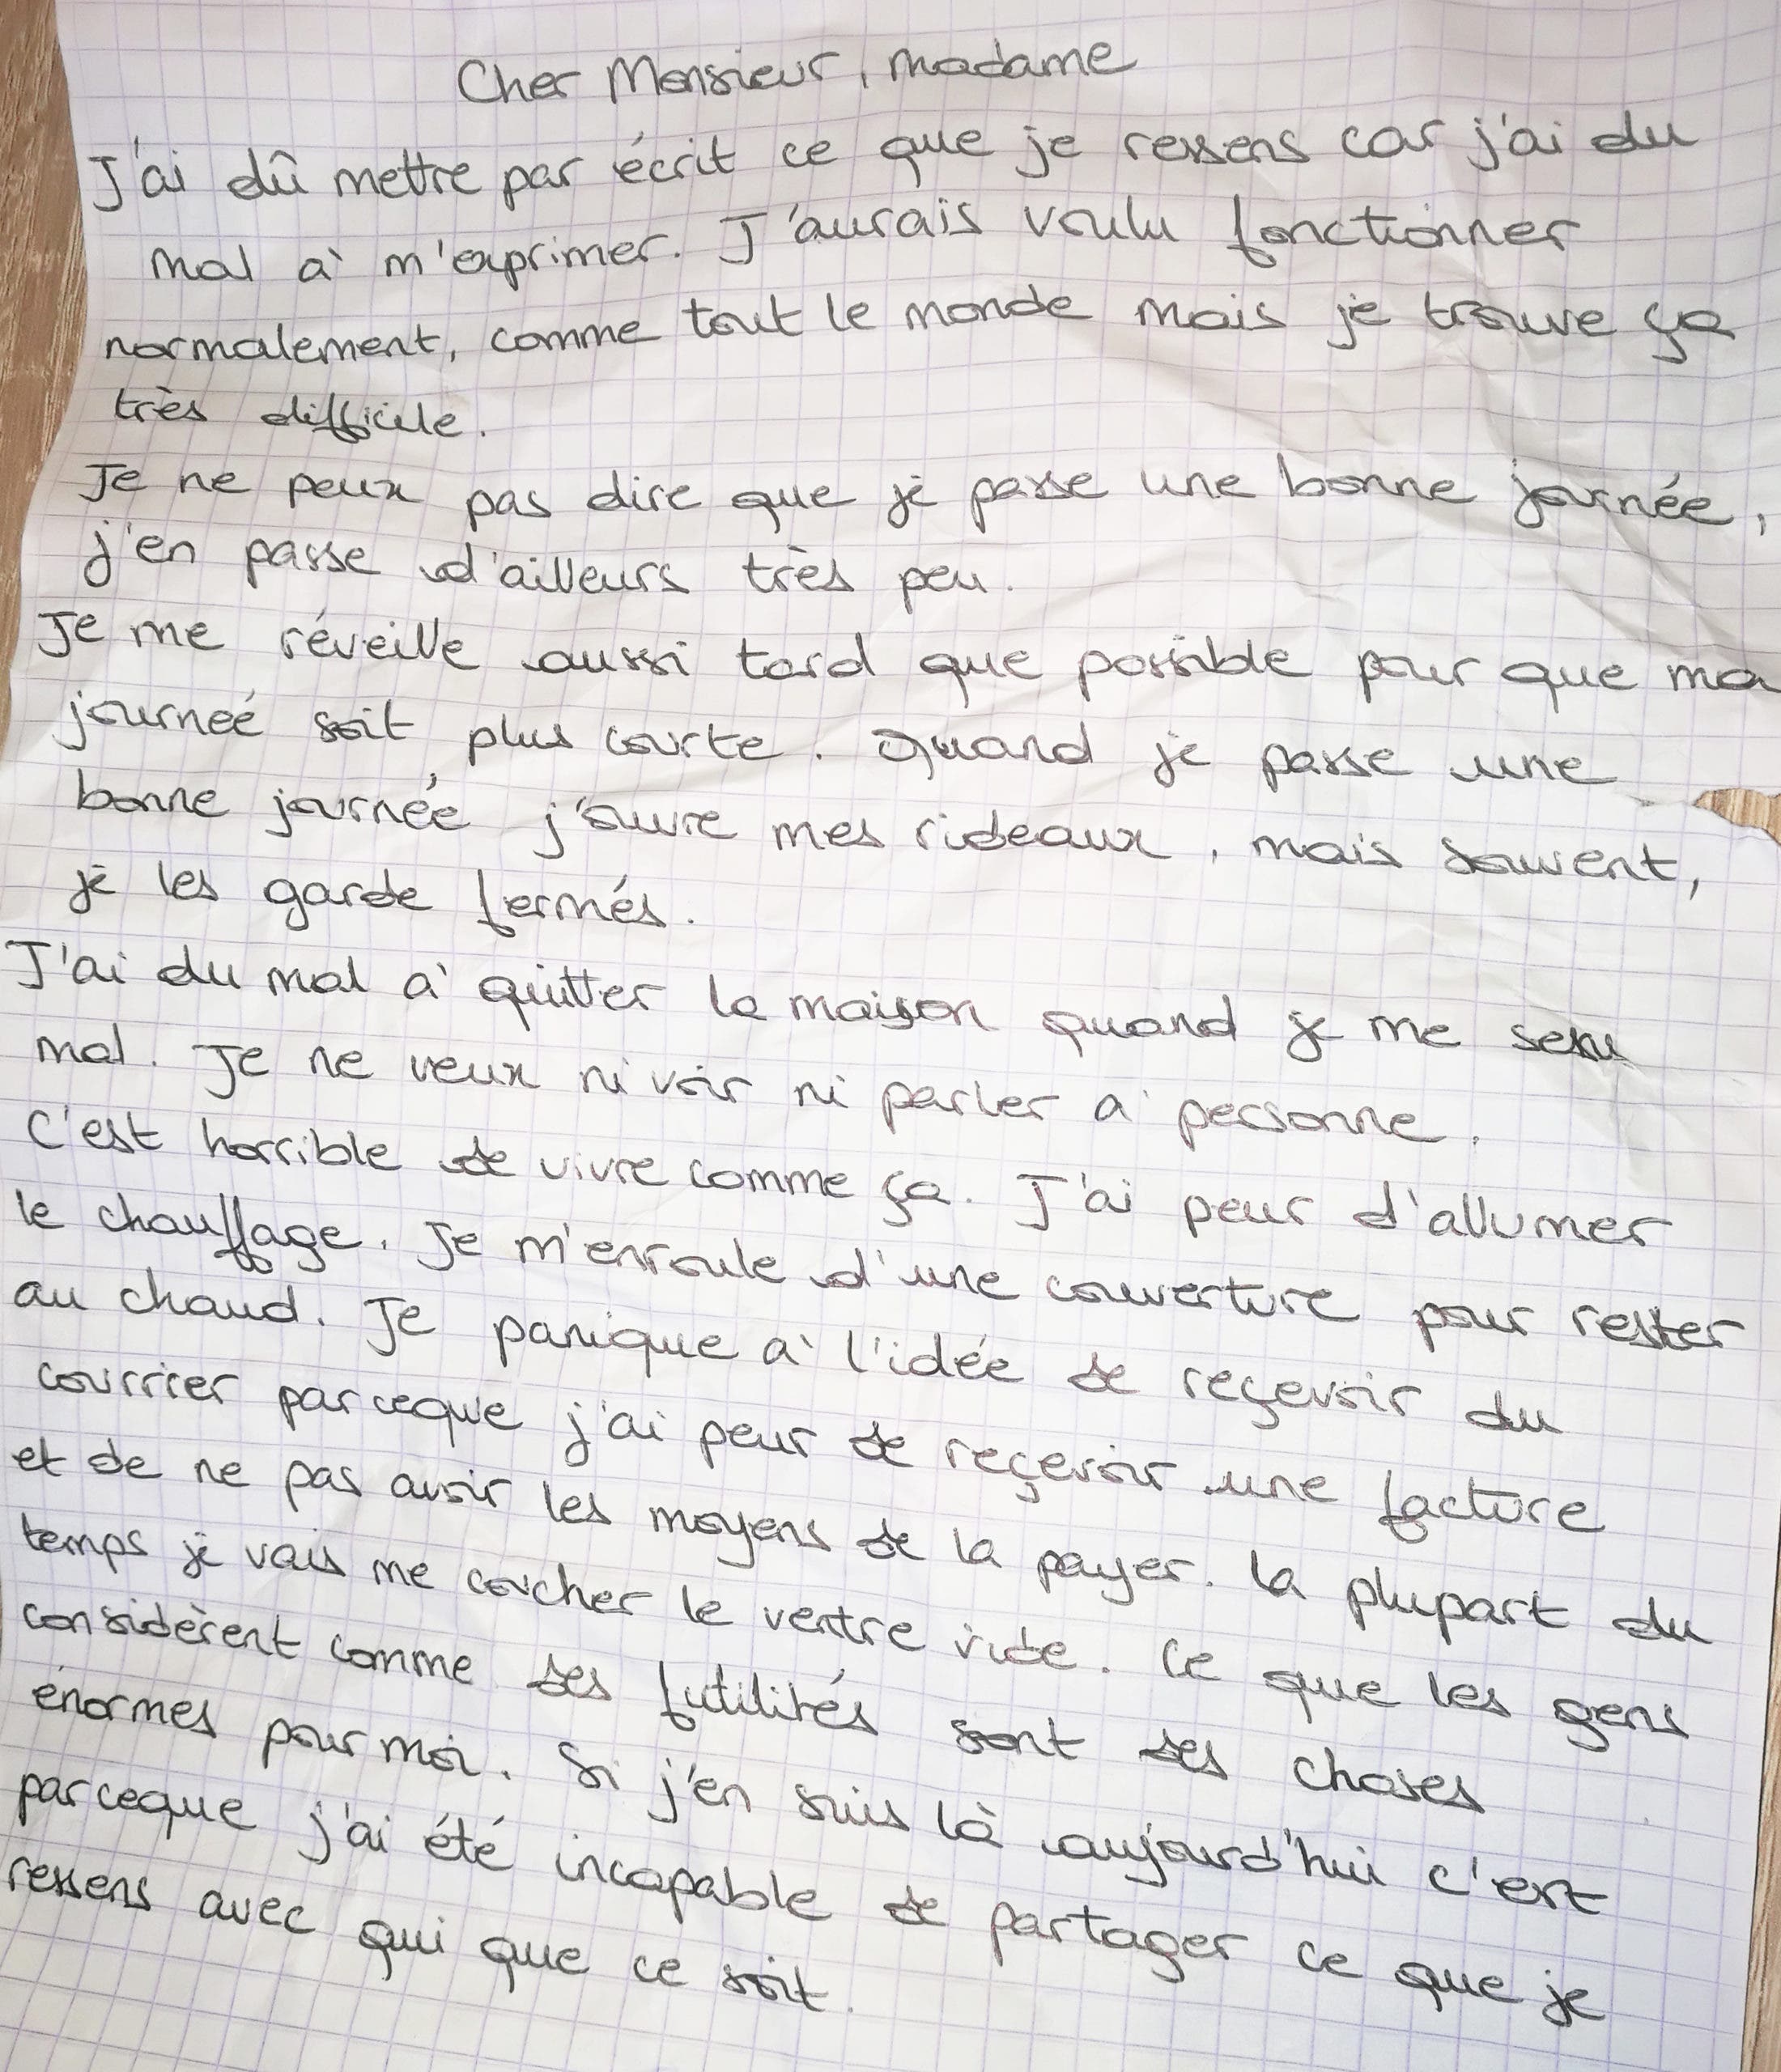 Cher Monsieur, madame
J'ai dû mettre par écrit ce que je ressens car j'ai du
mal à m'exprimer. J'aurais voulu fonctionner
normalement, comme tout le monde mais je trouve ça
très difficile.
Je ne peux pas dire que je passe une bonne journée,
j'en passe d'ailleurs très peu.
Je me réveille aussi tard que possible pour que ma
journeé soit plus courte. Quand je passe une
bonne journée j'ouvre mes rideaux, mais souvent,
je les garde fermés.
J'ai du mal à quitter la maison quand je me sens
mal. Je ne veux ni voir ni parler à personne.
C'est horrible de vivre comme ça. J'ai peur d'allumer
le chauffage. Je m'enroule d'une couverture pour rester
au chaud. Je panique à l'idée de reçevoir du
courrier parceque j'ai peur de reçevoir une facture
et de ne pas avoir les moyens de la payer. La plupart du
temps je vais me coucher le ventre vide. Ce que les gens
considèrent comme des futilités sont des choses
énormes pour moi. Si j'en suis là aujourd'hui c'est
parceque j'ai été incapable de partager ce que je
ressens avec qui que ce soit.